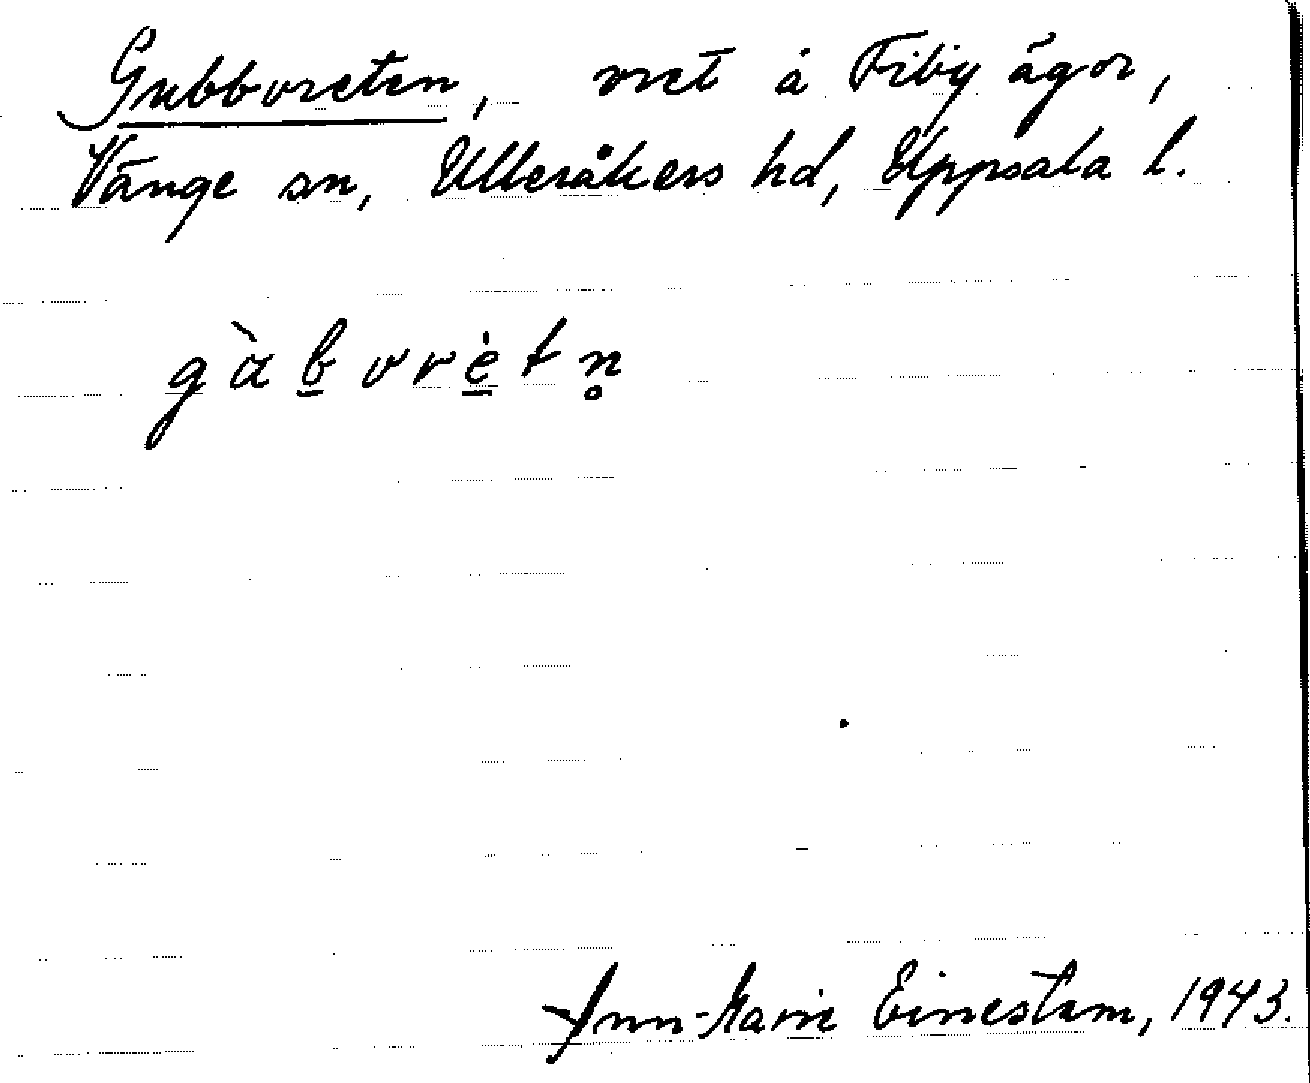 Gubbvreten, vret å Fiby ägor,
Vänge sn, Ulleråkers hd, Uppsala l.
gàb̲vrè̲tn̥
Ann-Marie Einestam, 1943.